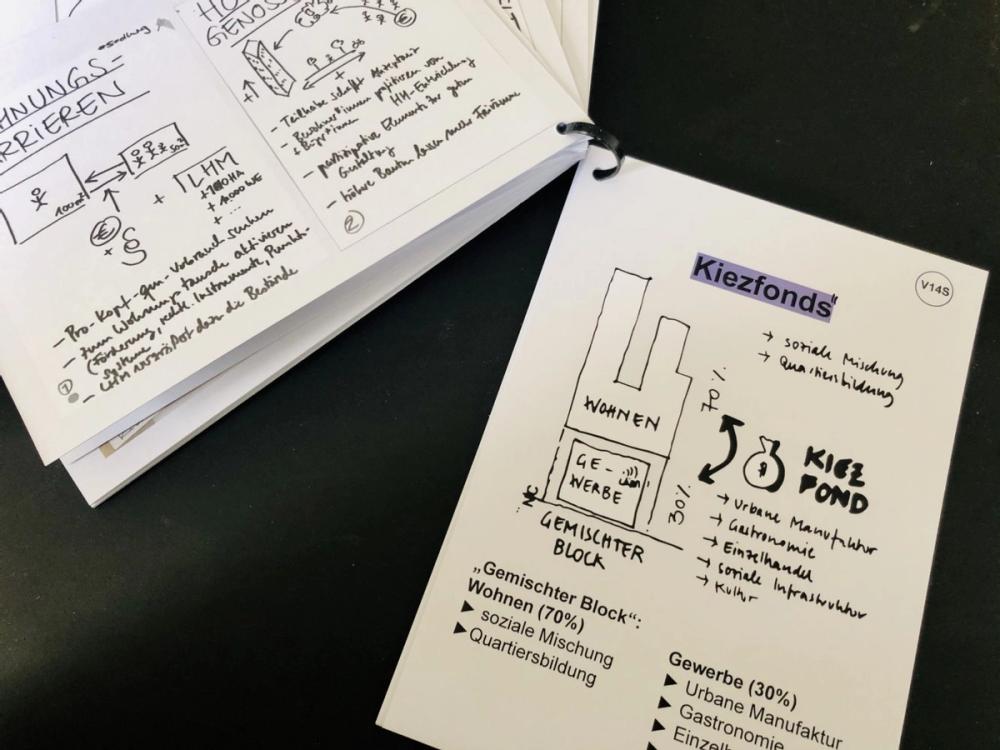 HNUNGS-
RRIEREN
100m²
€
+
§
+
LHM
+ ...
- Pro-Kopf-qm-Verbrauch senken
- zum Wohnungstausch aktivieren
(Förderung, rechtl. Instrumente, Punkt-
systeme
- LHM
dazu die Bestände
1
GENOSS
€
+
+
- Teilhabe schafft Akzeptanz
- Bewohner*innen profitieren von
HM-Entwicklung
- partizipative Elemente für guten
Gestaltung
- höhere Bauten lassen mehr Freiräume
2
Kiezfonds“
V14S
→ soziale Mischung
→ Quartiersbildung
WOHNEN
70%
GE-
WERBE
30%
KIEZ
FOND
$
GEMISCHTER
BLOCK
→ Urbane Manufaktur
→ Gastronomie
→ Einzelhandel
→ soziale Infrastruktur
→ Kultur
„Gemischter Block“:
Wohnen (70%)
► soziale Mischung
► Quartiersbildung
Gewerbe (30%)
► Urbane Manufaktur
► Gastronomie
► Einzelh